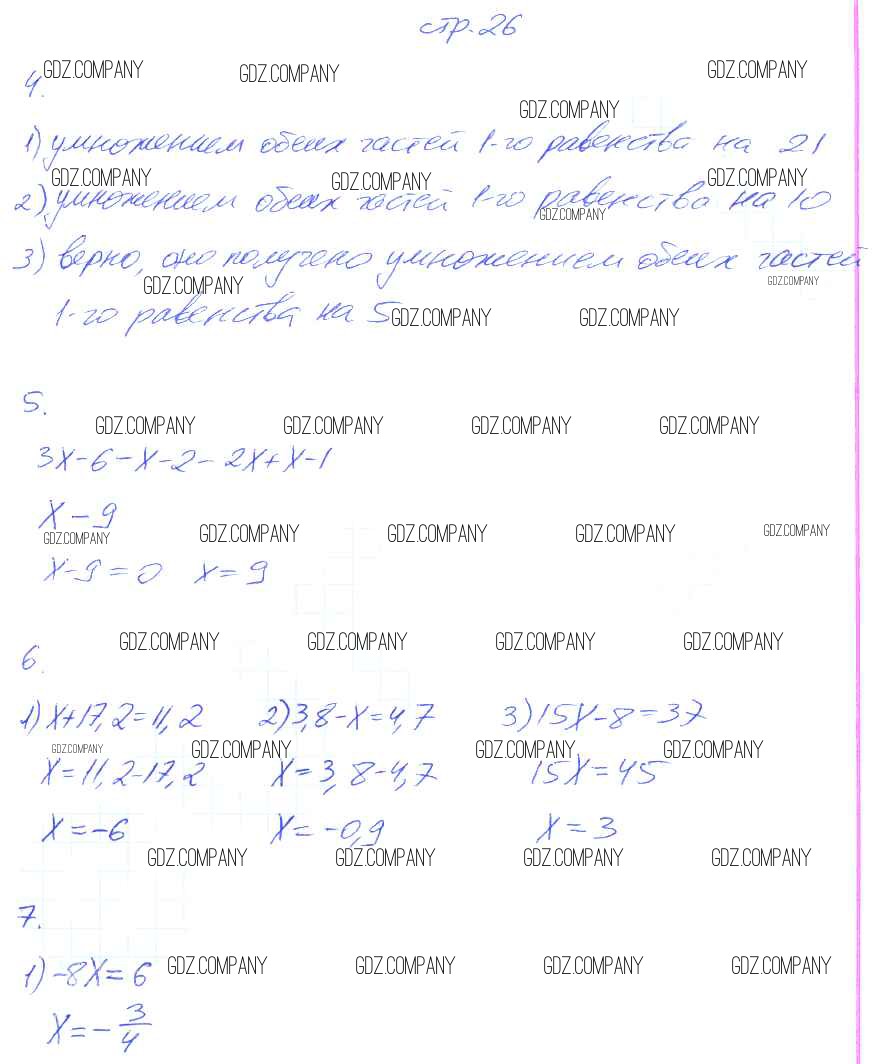 стр. 26
GDZ.COMPANY GDZ.COMPANY GDZ.COMPANY
4.
GDZ.COMPANY
1) умножением обеих частей 1-го равенства на 21
GDZ.COMPANY GDZ.COMPANY GDZ.COMPANY
2) умножением обеих частей 1-го равенства на 10
GDZ.COMPANY
3) верно, оно получено умножением обеих частей
GDZ.COMPANY GDZ.COMPANY
1-го равенства на 5
GDZ.COMPANY GDZ.COMPANY
5.
GDZ.COMPANY GDZ.COMPANY GDZ.COMPANY GDZ.COMPANY
3x-6-x-2-2x+x-1
x-9
GDZ.COMPANY GDZ.COMPANY GDZ.COMPANY GDZ.COMPANY GDZ.COMPANY
x-9=0 x=9
GDZ.COMPANY GDZ.COMPANY GDZ.COMPANY GDZ.COMPANY
6.
1) x+17,2=11,2 2) 3,8-x=4,7 3) 15x-8=37
GDZ.COMPANY GDZ.COMPANY GDZ.COMPANY GDZ.COMPANY
x=11,2-17,2 x=3,8-4,7 15x=45
x=-6 x=-0,9 x=3
GDZ.COMPANY GDZ.COMPANY GDZ.COMPANY GDZ.COMPANY
7.
1) -8x=6
GDZ.COMPANY GDZ.COMPANY GDZ.COMPANY GDZ.COMPANY
x=-3/4